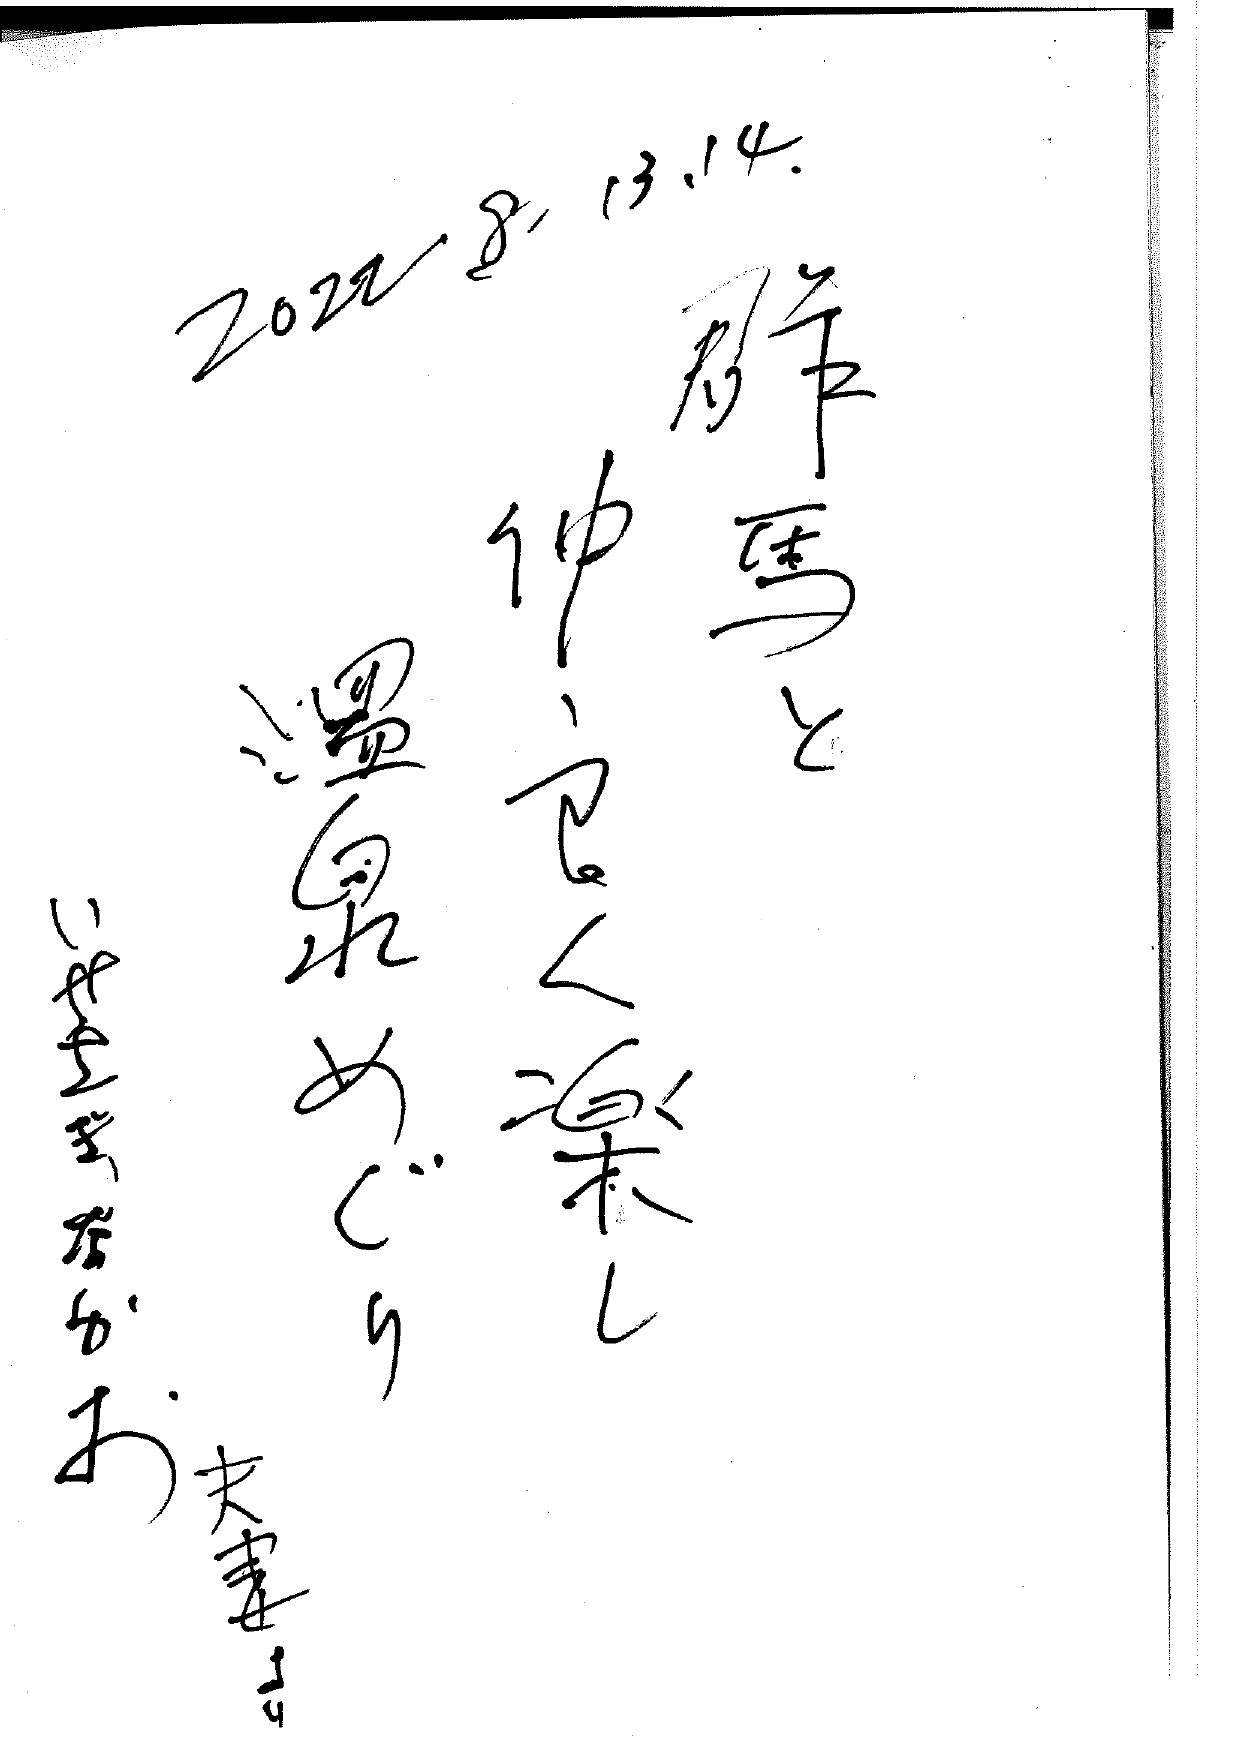 2022 8, 13.14.
群馬と
仲良く楽し
温泉めぐり
お
夫妻より